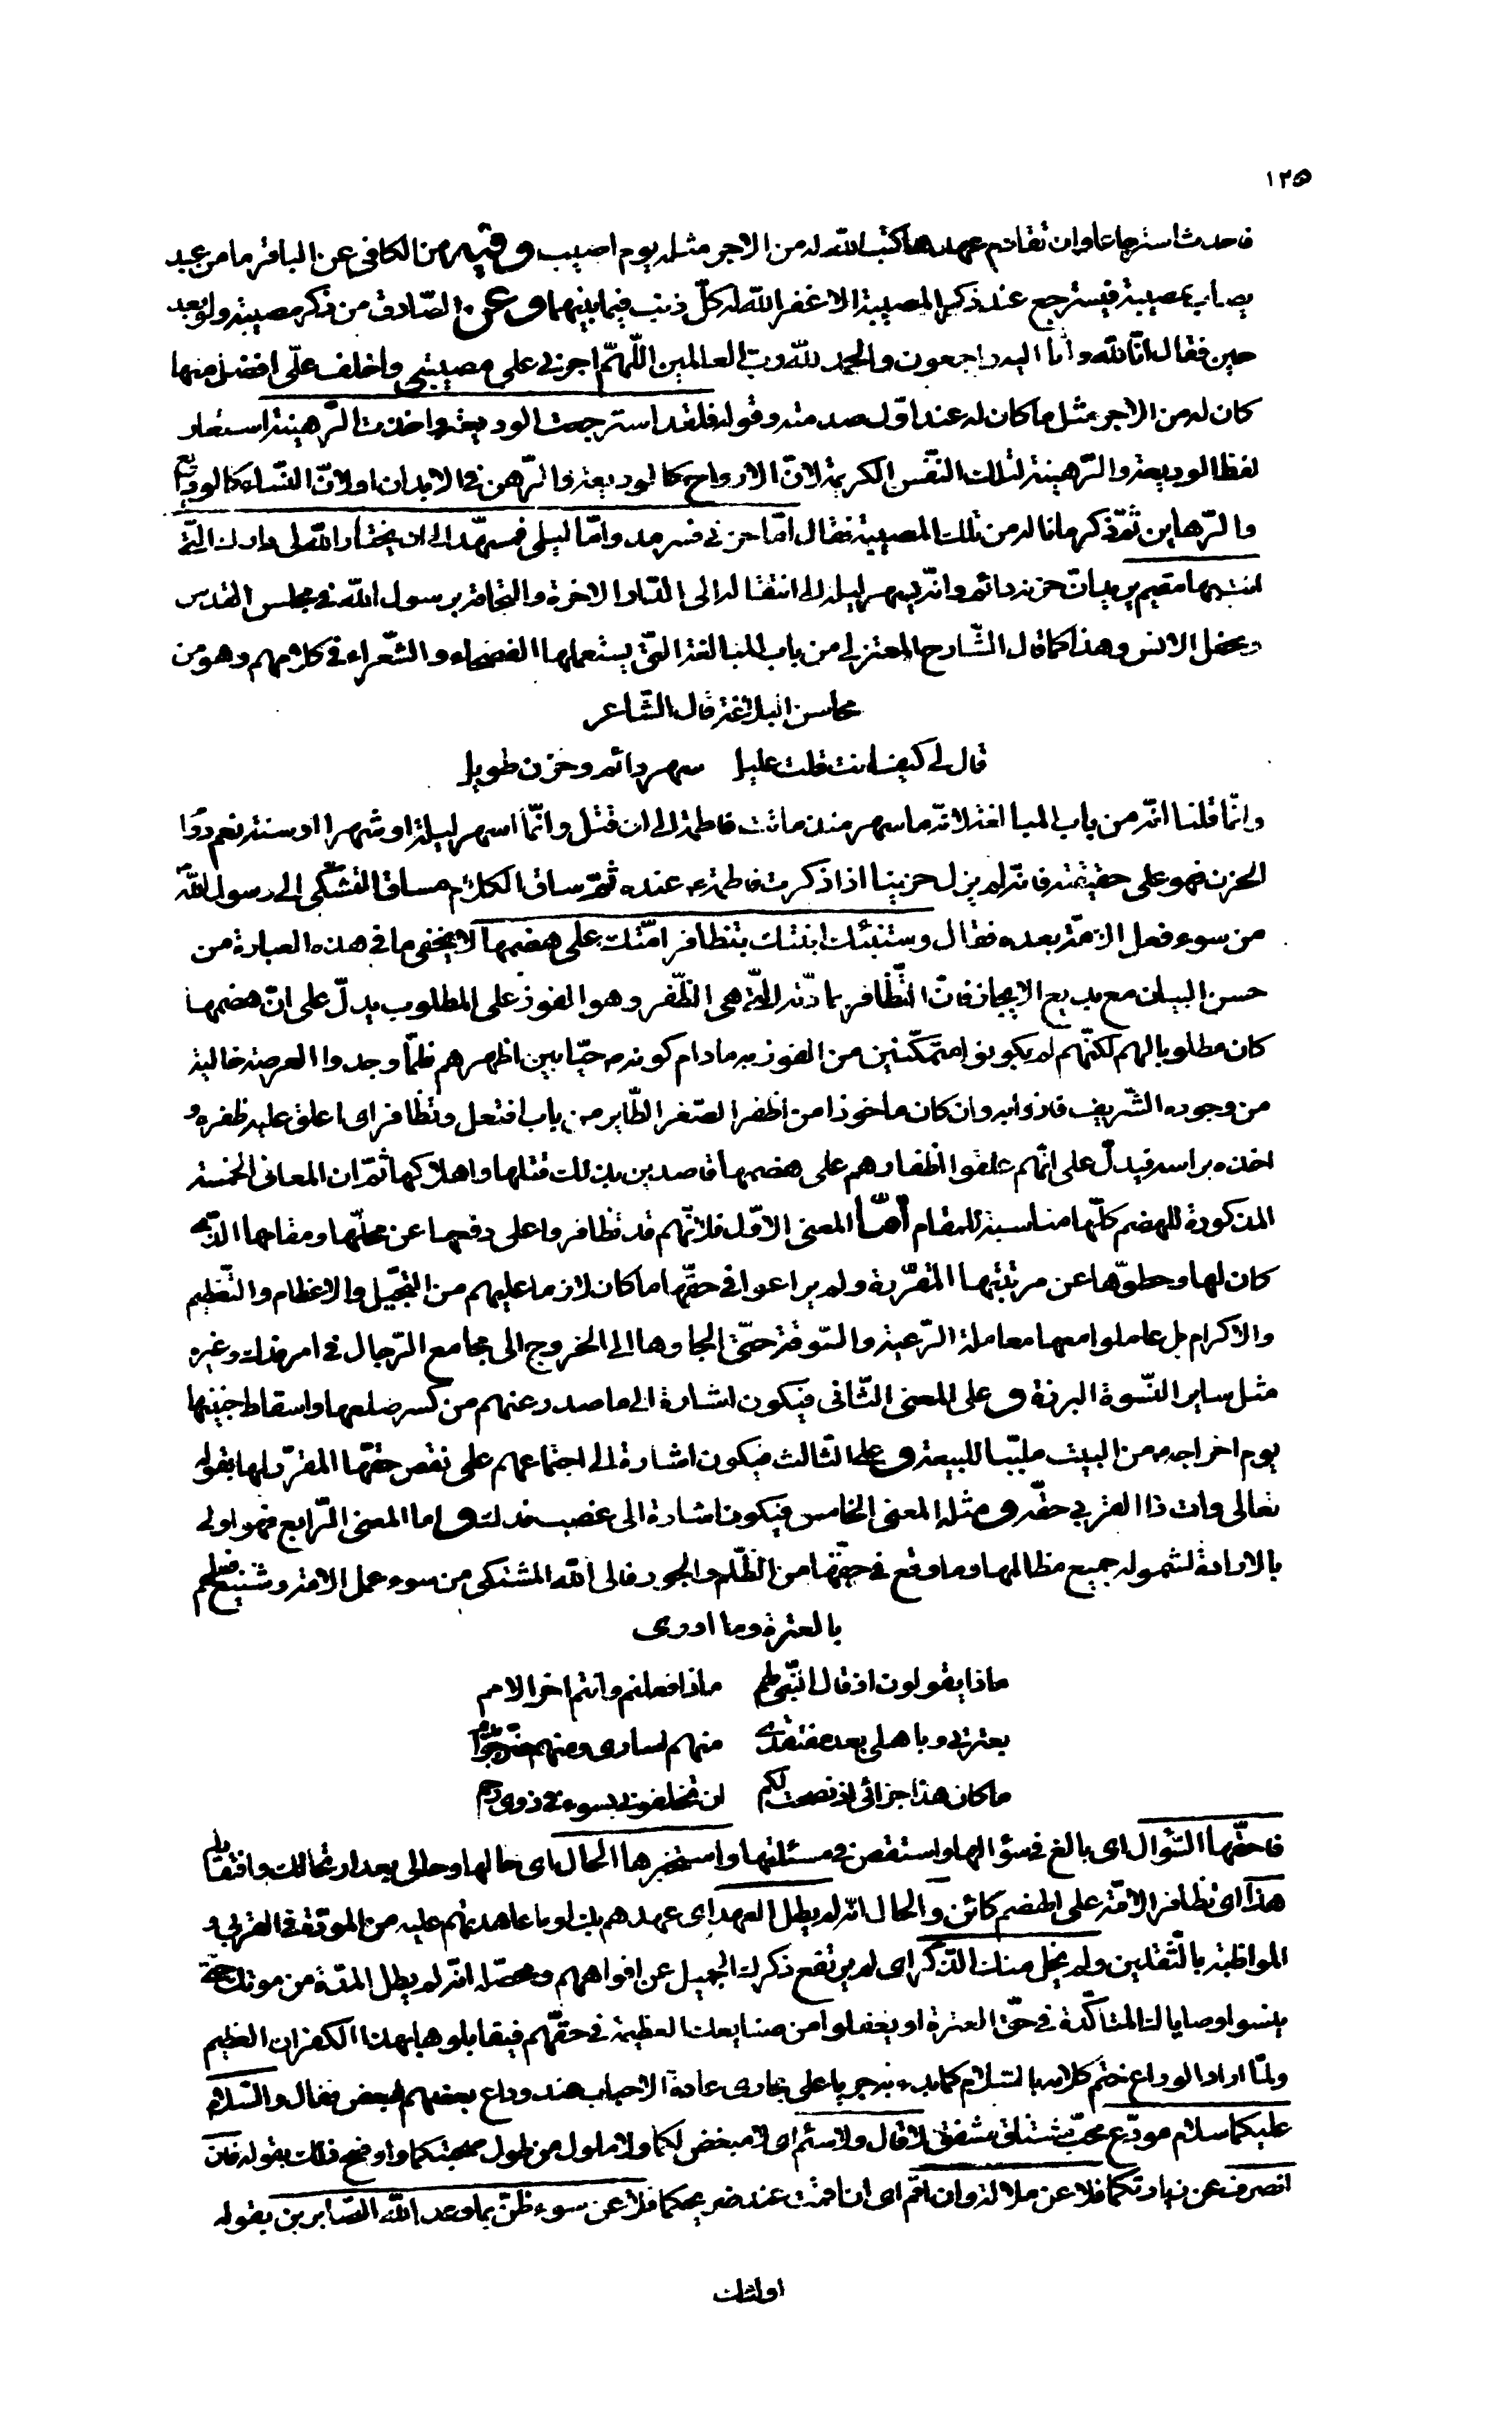 ١٢٥
فاحدث استرجاعا وان تقادم عهدها كتب الله له من الاجر مثله يوم اصيب وفيه من الكافي عن الباقر ما من عبد
يصاب بمصيبة فيسترجع عند ذكر المصيبة الا غفر الله له كلّ ذنب فيما بينهما وعن الصّادق من ذكر مصيبة ولو بعد
حين فقال انّا لله وانا اليه راجعون والحمد لله ربّ العالمين اللّهمّ اجرني على مصيبتي واخلف علّى افضل منها
كان له من الاجر مثل ما كان له عند اوّل صدمته وقوله فلقد استرجعت الوديعة واخذت الرّهينة استعار
لفظ الوديعة والرّهينة لتلك النّفس الكريمة لانّ الارواح كالوديعة والرّهن في الابدان اولانّ النّساء كالودايع
والرّهاين ثمّ ذكر ما ناله من تلك المصيبة فقال امّا حزني فسرمد وامّا ليلي فمسهّد الى ان يختار الله لى دارك التي
انت بها مقيم يريد انّ حزنه دائم وانّه يسهر ليله الى انتقاله الى الدّار الاخرة والتحاقه برسول الله في مجلس القدس
ومحفل الانس وهذا كما قال الشّارح المعتزلي من باب المبالغة التّي يستعملها الفصحاء والشّعراء في كلامهم وهو من
محاسن البلاغة قال الشّاعر
قال لي كيف انت قلت عليل سهر دائم وحزن طويل
وانّما قلنا انّه من باب المبالغة لانّه ما سهر منذ ماتت فاطمة الى ان قتل وانّما اسهر ليلة او شهرا او سنة نعم دوام
الحزن فهو على حقيقته فانّه لم يزل حزينا اذا ذكرت فاطمة ع عنده ثمّ ساق الكلام مساق التشكّي الى رسول الله ص
من سوء فعل الامّة بعده فقال وستنبّئك ابنتك بتظافر امّتك على هضمها لا يخفى ما في هذه العبارة من
حسن البيان مع بديع الايجاز فانّ التّظافر بمادّته الّتي هي الظّفر وهو الفوز على المطلوب يدلّ على انّ هضمها
كان مطلوبا لهم لكنّهم لم يكونوا متمكّنين من الفوز به ما دام كونه ص حيّا بين اظهرهم فلمّا وجدوا العرصة خالية
من وجوده الشّريف فازوا به وان كان ماخوذا من اظفر الصّقر الطّاير من باب افتعل وتظافر اى اعلق عليه ظفره و
اخذه براسه فيدلّ على انّهم علقوا اظفارهم على هضمها قاصدين بذلك قتلها واهلاكها ثمّ ان المعاني الخمسة
المذكورة للهضم كلّها مناسبة للمقام أمّا المعنى الاوّل فلانّهم قد تظافروا على دفعها عن محلّها ومقامها الّذي
كان لها وحطوّها عن مرتبتها المتقرّبة ولم يراعوا في حقّها ما كان لازما عليهم من التبجّيل والاعظام والتّعظيم
والاكرام بل عاملوا معها معاملة الرّعية والسّوقة حتّى الجاوها الى الخروج الى مجامع الرّجال في امر فدك وغيره
مثل ساير النّسوة البرزة وعلى المعنى الثّاني فيكون اشارة الى ما صدر عنهم من كسر ضلعها واسقاط جنينها
يوم اخراجه ع من البيت ملبّبا للبيعة وعلى الثالث فيكون اشارة الى اجتماعهم على نقص حقّها المقرّر لها بقوله
تعالى وات ذا القربي حقّه ومثله المعنى الخامس فيكون اشارة الى غصب فدك واما المعنى الرّابع فهو اولى
بالارادة لشموله جميع مظالمها وما وقع في حقّها من الظّلم والجور فالى الله المشتكى من سوء عمل الامّة وشنيع فعلهم
بالعترة وما ادرى
ماذا يقولون اذ قال النّبي لهم ماذا فعلتم وانتم اخر الامم
بعترتي وباهلي بعد مفتقدى منهم اسارى ومنهم ضرّجوا بدم
ما كان هذا جزائي اذ نصحت لكم ان تخلفوني بسوء في ذوى رحم
فاحفّها السّؤال اى بالغ في سؤالها واستقص في مسئلتها واستخبرها الحال اى حالها وحالى بعد ارتحالك وافتقادك
هذا اى تظافر الامّة على الهضم كائن والحال انّه لم يطل العهد اى عهدهم بك او ما عاهدتهم عليه من المودّة في القربى و
المواظبة بالثّقلين ولم يخل منك الذّكر اى لم يرتفع ذكرك الجميل عن افواههم ومحصّله انّه لم يطل المدّة من موتك حتّى
ينسوا وصاياك المتأكّدة في حقّ العترة او يغفلوا من صنايعك العظيمة في حقّهم فيقابلوها بهذا الكفران العظيم
ولمّا اراد الوداع ختم كلامه بالسّلام كما بدء به جريا على مجارى عادة الاحباب عند وداع بعضهم لبعض فقال والسّلام
عليكما سلام مودّع محبّ مشتاق مشفق لا قال ولا سئم اى لا مبغض لكما ولا ملول من طول صحبتكما واوضح ذلك بقوله فان
انصرف عن زيارتكما فلا عن ملالة وان اقم اى ان اقمت عند ضريحكما فلا عن سوء ظنّ بما وعد الله الصّابرين بقوله
اولئك